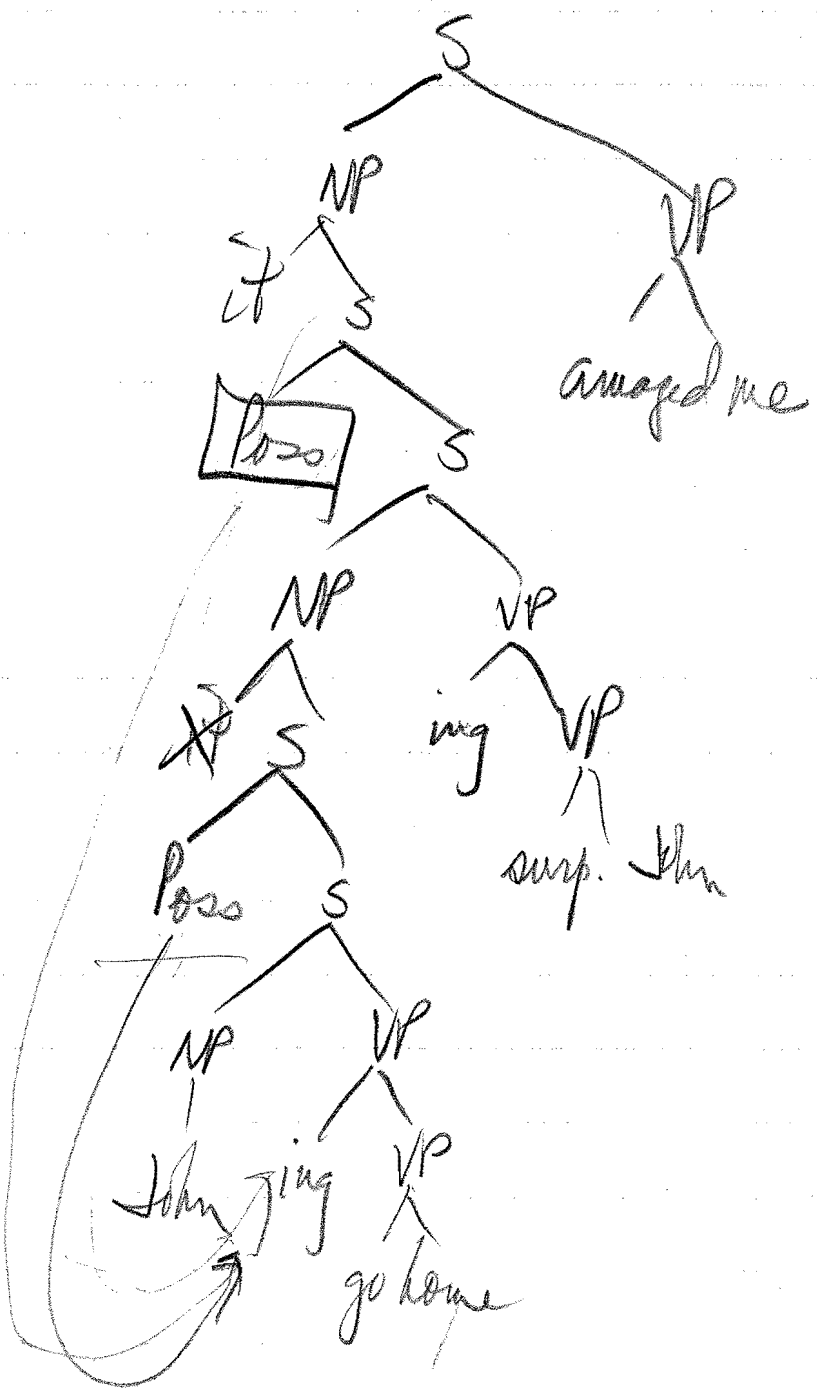 S
NP VP
it S
amazed me
Poss S
NP VP
S ing VP
surp. John
Poss S
NP VP
John ing VP
go home